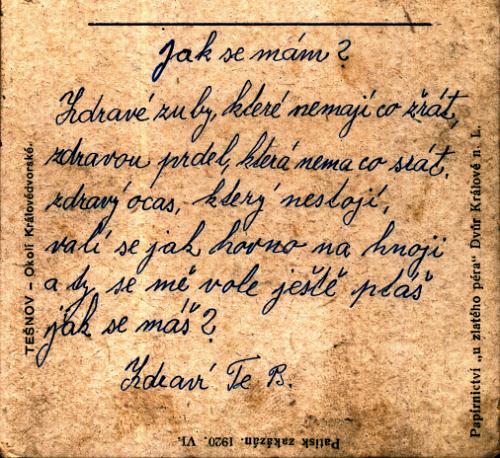 Jak se mám?
Zdravé zuby, které nemají co žrát,
zdravou prdel, která nema co srát,
zdravý ocas, který nestojí,
valí se jak hovno na hnoji
a ty se mě vole ještě ptaš
jak se máš?
Zdraví Te B.
TEŠNOV – Okolí Královédvorské.
Papírnictví „u zlatého péra" Dvůr Králové n. L.
Patisk zakázán. 1920. VI.